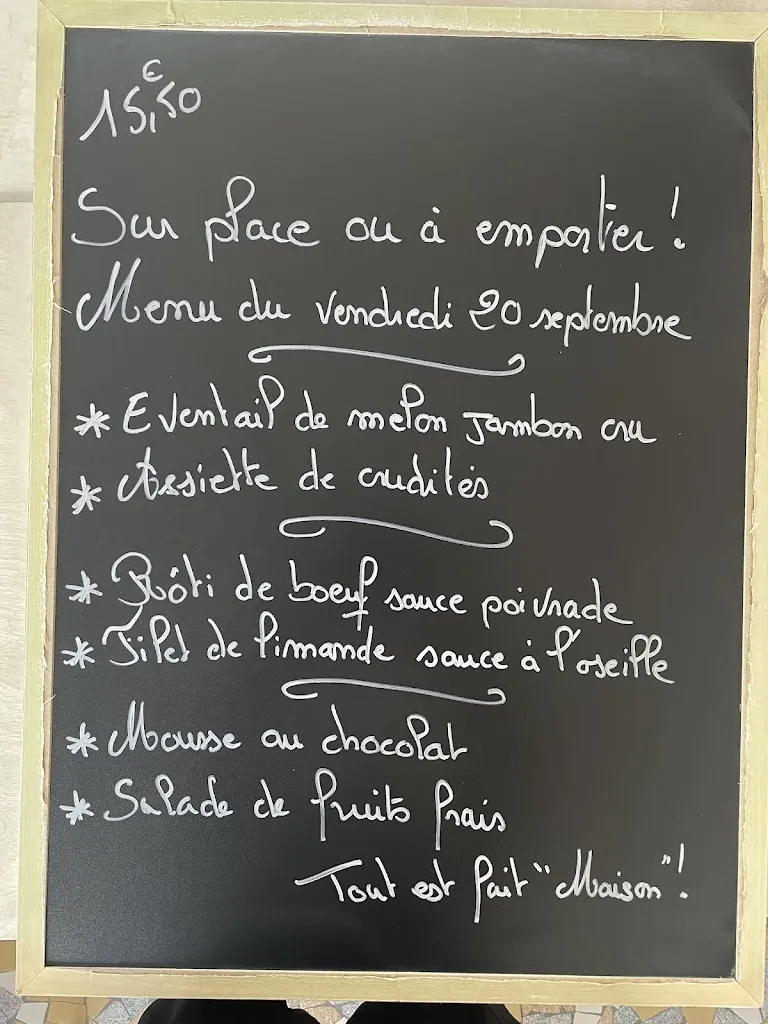 15,50 €
Sur place ou à emporter !
Menu du vendredi 20 septembre
* Eventail de melon jambon cru
* Assiette de crudités
* Rôti de boeuf sauce poivrade
* Filet de limande sauce à l'oseille
* Mousse au chocolat
* Salade de fruits frais
Tout est fait "Maison" !